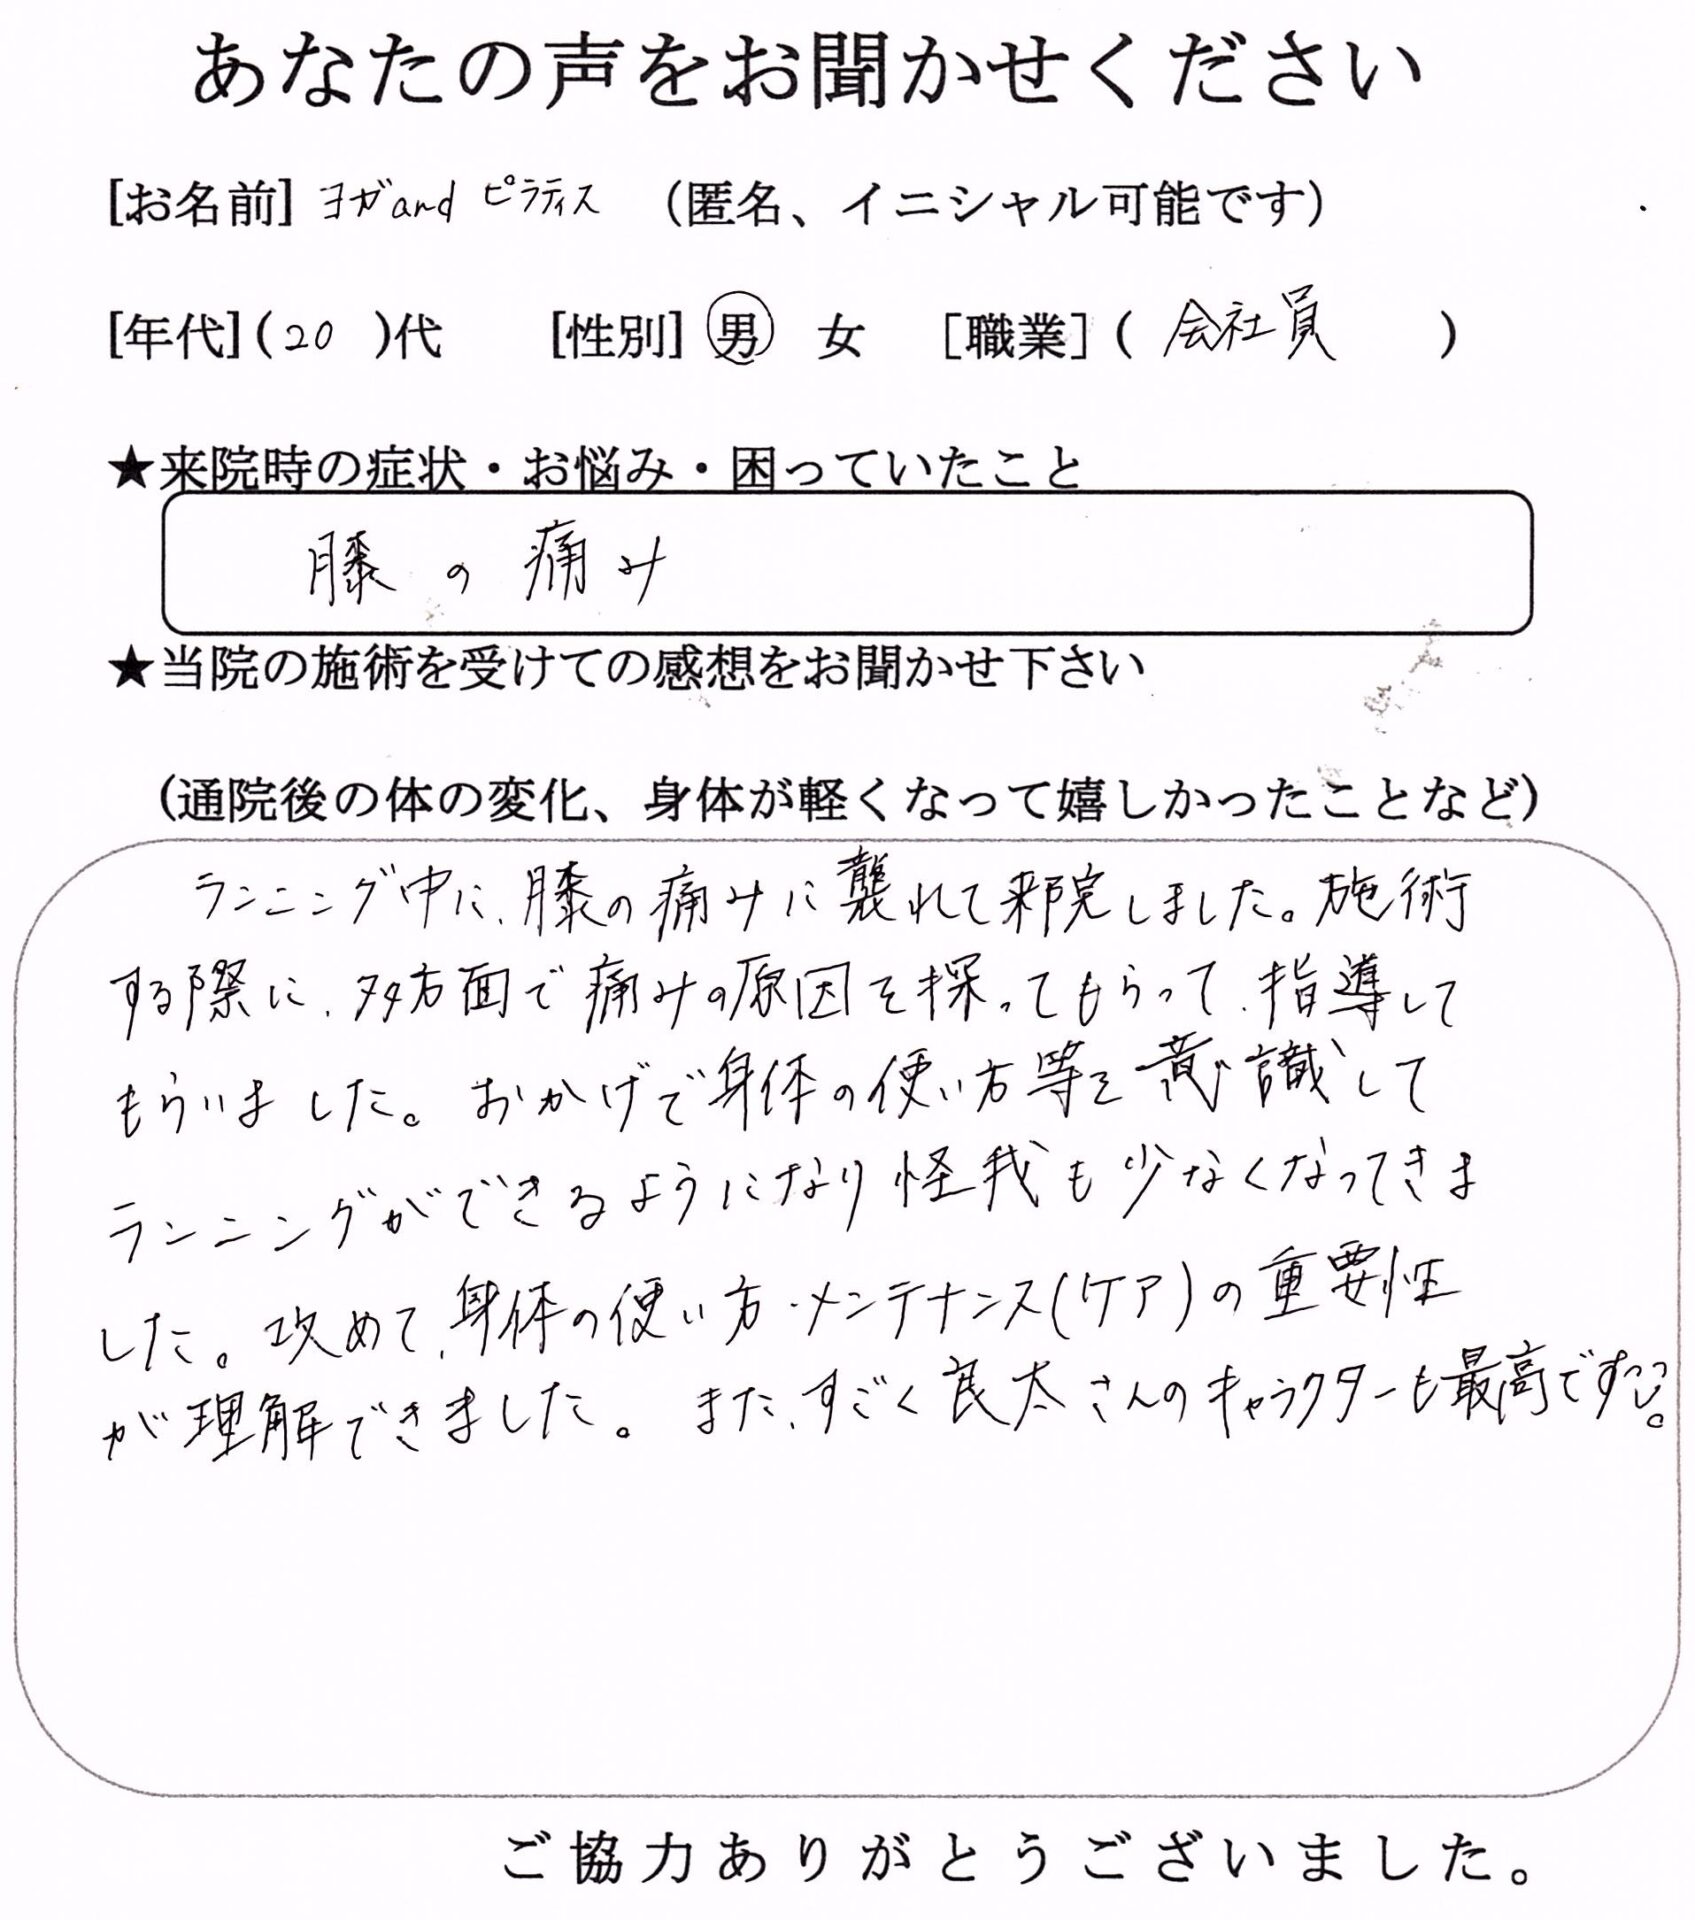 あなたの声をお聞かせください
[お名前] ヨガand ピラティス （匿名、イニシャル可能です）
[年代] (20 )代 [性別] 男 女 [職業] ( 会社員 )
★来院時の症状・お悩み・困っていたこと
膝の痛み
★当院の施術を受けての感想をお聞かせ下さい
（通院後の体の変化、身体が軽くなって嬉しかったことなど）
ランニング中に、膝の痛みに襲れて来院しました。施術
する際に、多方面で痛みの原因を探ってもらって、指導して
もらいました。おかげで身体の使い方等を意識して
ランニングができるようになり怪我も少なくなってきま
した。改めて、身体の使い方・メンテナンス(ケア)の重要性
が理解できました。また、すごく良太さんのキャラクターも最高です。
ご協力ありがとうございました。